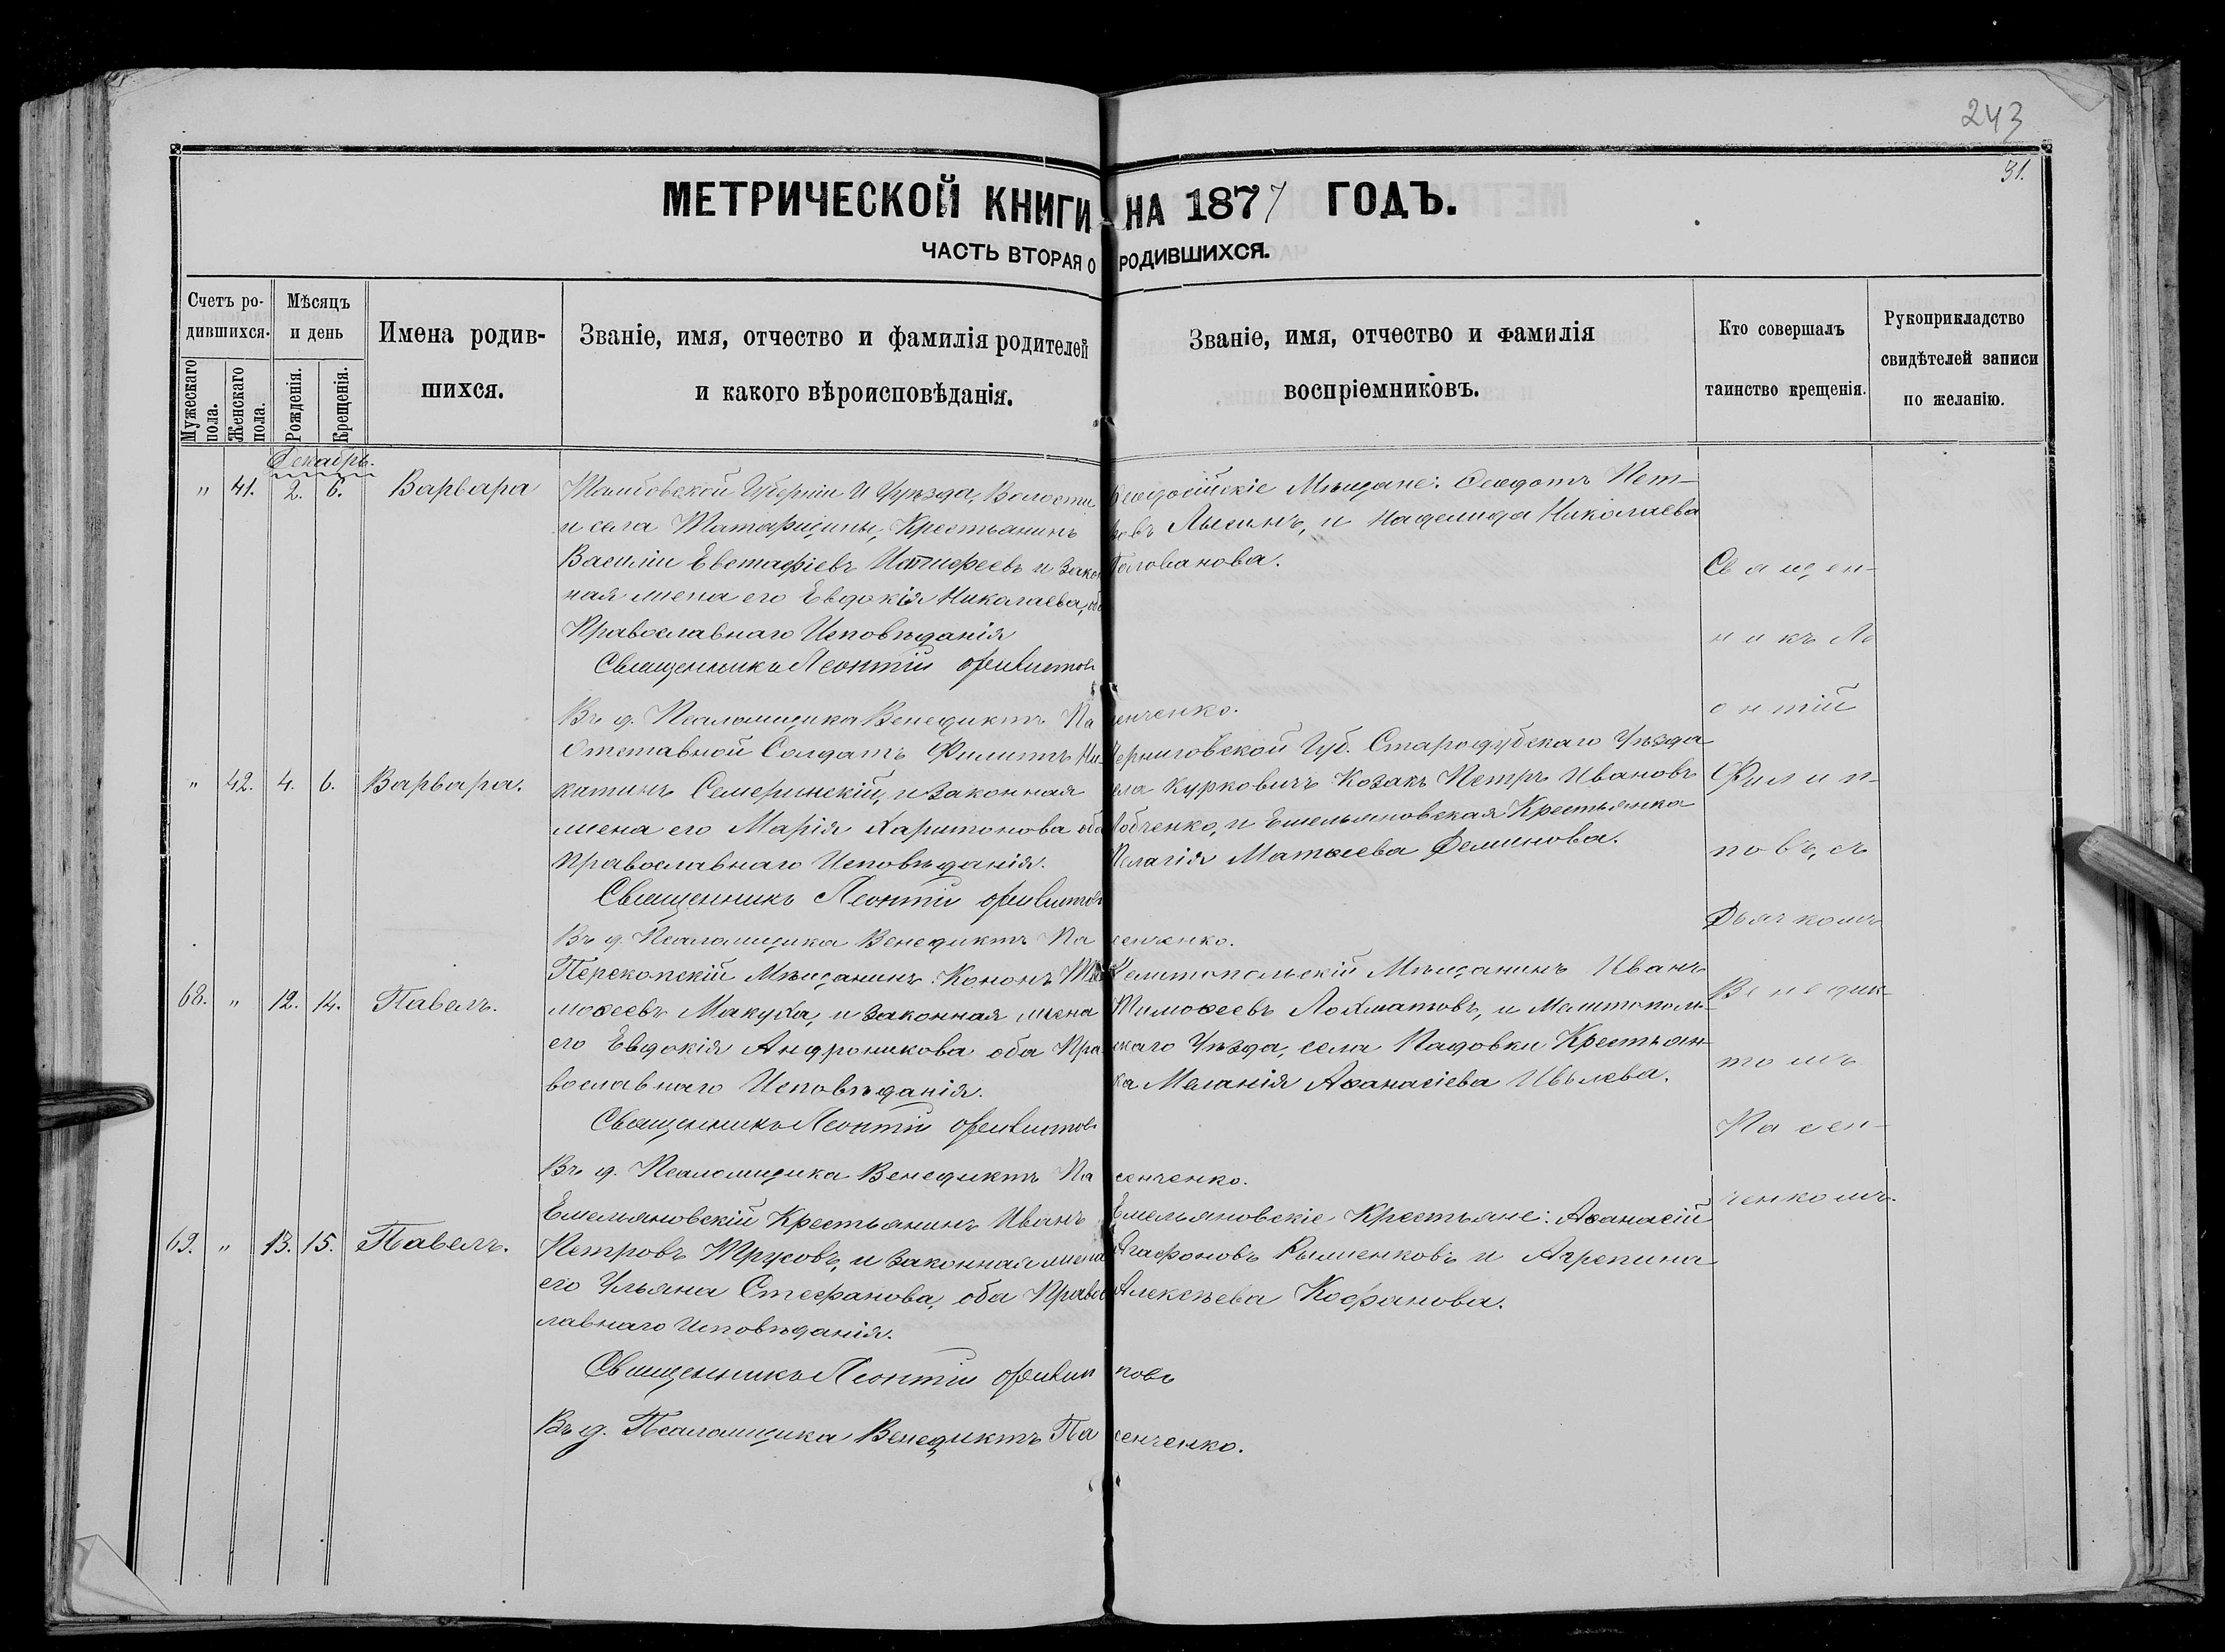 243
31.
МЕТРИЧЕСКОЙ КНИГИ НА 1877 ГОДЪ.
ЧАСТЬ ВТОРАЯ О РОДИВШИХСЯ.
Счетъ ро-
дившихся.
Мужескаго пола.
Женскаго пола.
Мѣсяцъ
и день
Рожденія.
Крещенія.
Имена родив-
шихся.
Званіе, имя, отчество и фамилія родителей
и какого вѣроисповѣданія.
Званіе, имя, отчество и фамилія
воспріемниковъ.
Кто совершалъ
таинство крещенія.
Рукоприкладство
свидѣтелей записи
по желанію.
Декабрь.
" 41. 2. 6. Варвара
Тамбовской Губерніи и Уѣзда, Волости
и села Татарщины, Крестьянинъ
Василій Евстафіевъ и закон
ная жена его Евдокія Николаева, оба
Православнаго Исповѣданія
Священникъ Леонтій Филиповъ
Въ д. Псаломщика Венедиктъ Па сенченко.
Феодосійскіе Мѣщане: Феодотъ Пет-
ровъ Лысинъ, и Надежда Николаева
Голованова.
" 42. 4. 6. Варвара.
Отставной Солдатъ Филиппъ Ни-
китинъ Семеринскій, и законная
жена его Марія Харитонова оба
Православнаго Исповѣданія.
Священникъ Леонтій Филиповъ
Въ д. Псаломщика Венедиктъ Па сенченко.
Черниговской Губ. Стародубскаго Уѣзда
села Курковичъ Козакъ Петръ Ивановъ
и Емельяновская Крестьянка
Пелагія Матѳеева Деминова.
68. " 12. 14. Павелъ.
Перекопскій Мѣщанинъ: Кононъ Ти
моѳеевъ Макуха, и законная жена
его Евдокія Андроникова оба Пра-
вославнаго Исповѣданія.
Священникъ Леонтій Филиповъ
Въ д. Псаломщика Венедиктъ Па сенченко.
Мелитопольскій Мѣщанинъ Иванъ
Тимоѳеевъ Лохматовъ, и Мелитополь-
скаго Уѣзда, села Падовки Крестьян-
ка Меланія Аѳанасіева Ивлева.
69. " 13. 15. Павелъ.
Емельяновскій Крестьянинъ Иванъ
Петровъ Трусовъ, и законная жена
его Ульяна Стефанова, оба Правос
лавнаго Исповѣданія.
Священникъ Леонтій Филип повъ
Въ д. Псаломщика Венедиктъ Па сенченко.
Емельяновскіе Крестьяне: Аѳанасій
Агафоновъ Рыженковъ и Агрепина
Алексѣева Кофанова.
Священ-
никъ Ле
онтій
Филип-
повъ, съ
Дьячкомъ
Венедик-
томъ
Пасен-
ченкомъ.